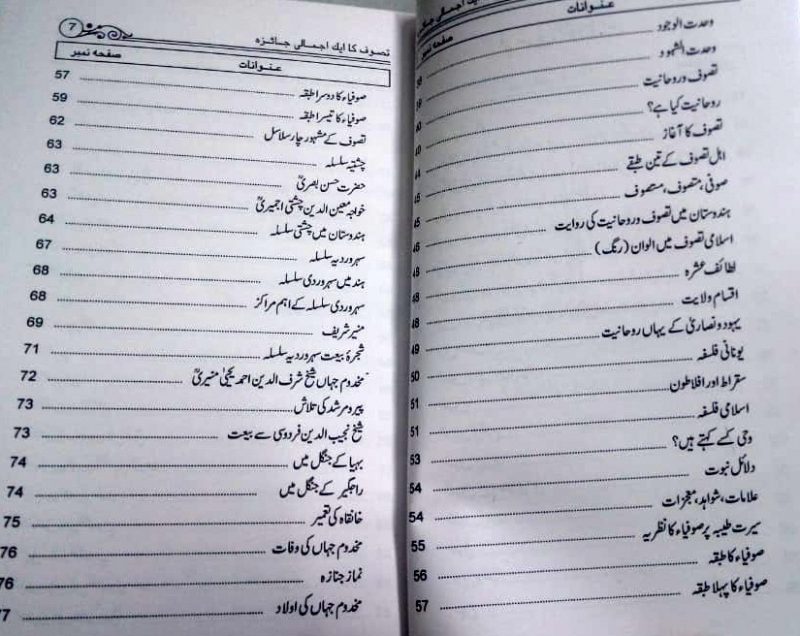 عنوانات
صفحہ نمبر
وحدت الوجود
وحدت الشہود
تصوف وروحانیت
روحانیت کیا ہے؟
تصوف کا آغاز
اہل تصوف کے تین طبقے
صوفی، متصوف، مستصوف
ہندوستان میں تصوف وروحانیت کی روایت
اسلامی تصوف میں الوان (رنگ)
لطائف عشرہ
اقسام ولایت
یہود ونصاریٰ کے یہاں روحانیت 49
یونانی فلسفہ 50
سقراط اور افلاطون 51
اسلامی فلسفہ 51
وحی کسے کہتے ہیں؟ 53
دلائل نبوت 54
علامات، شواہد، معجزات 54
سیرت طیبہ پر صوفیاء کا نظریہ 55
صوفیاء کا طبقہ 56
صوفیاء کا پہلا طبقہ 57
تصوف کا ایک اجمالی جائزہ 7
عنوانات صفحہ نمبر
صوفیاء کا دوسرا طبقہ 57
صوفیاء کا تیسرا طبقہ 59
تصوف کے مشہور چار سلاسل 62
چشتیہ سلسلہ 63
حضرت حسن بصریؒ 63
خواجہ معین الدین چشتی اجمیریؒ 63
ہندوستان میں چشتی سلسلہ 64
سہروردیہ سلسلہ 67
ہند میں سہروردی سلسلہ 68
سہروردی سلسلہ کے اہم مراکز 68
منیر شریف 69
شجرۂ بیعت سہروردیہ سلسلہ 71
مخدوم جہاں شیخ شرف الدین احمد یحییٰ منیریؒ 72
پیر و مرشد کی تلاش 73
شیخ نجیب الدین فردوسی سے بیعت 73
بہیا کے جنگل میں 74
راجگیر کے جنگل میں 74
خانقاہ کی تعمیر 75
مخدوم جہاں کی وفات 76
نماز جنازہ 76
مخدوم جہاں کی اولاد 77